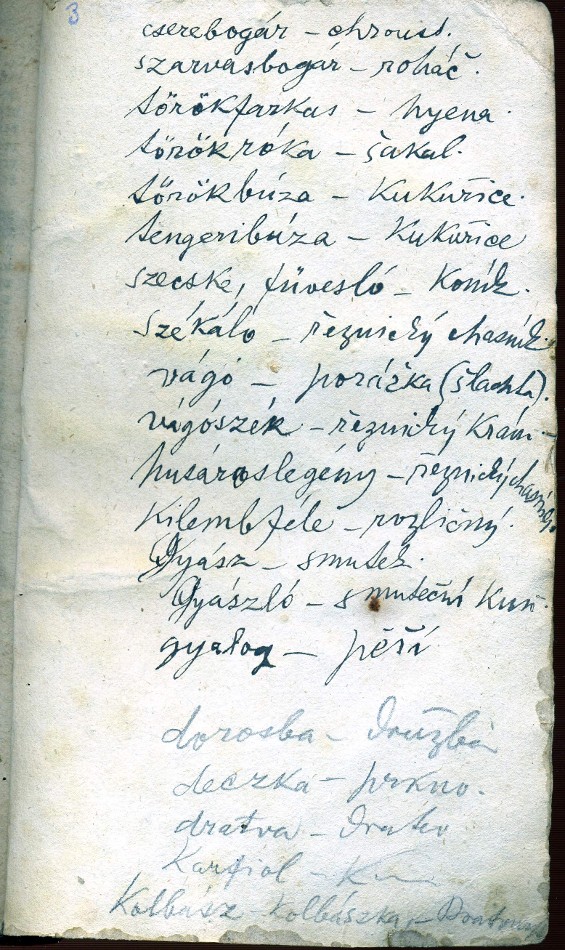 3
cserebogár – chroust.
szarvasbogár – roháč.
törökfarkas – hyena.
törökróka – šakal.
törökbúza – Kukuřice.
tengeribúza – Kukuřice
szecske, füvesló – Koník.
Székáló – řeznický chasník.
vágó – porážka (šlachta).
vágószék – řeznický Krám –
husároslegény – řeznický chasník
Kilembféle – rozličný.
Gyász – smutek.
Gyászló – smuteční Kuň.
gyalog – pěší
dorosba – Družba
deczka – prkno.
dratva – Dratev
Karfiol – K
Kolbász – Kolbászka, –